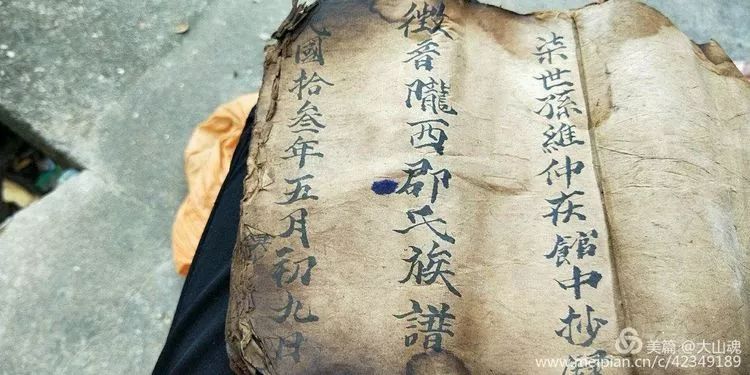 柒世孫維仲在館中抄
徵音隴西郡氏族譜
民國拾叄年五月初九日
美篇 @大山魂
www.meipian.cn/c/42349189